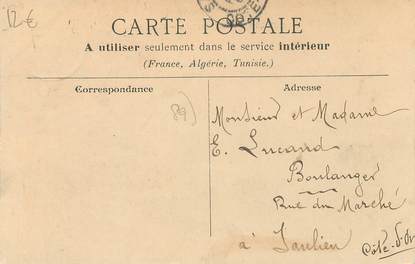 12€
CARTE POSTALE
A utiliser seulement dans le service intérieur
(France, Algérie, Tunisie.)
Correspondance
Adresse
89)
Monsieur et Madame
E. Lucand
Boulanger
Rue du Marché
à Saulieu
Côte-d'Or